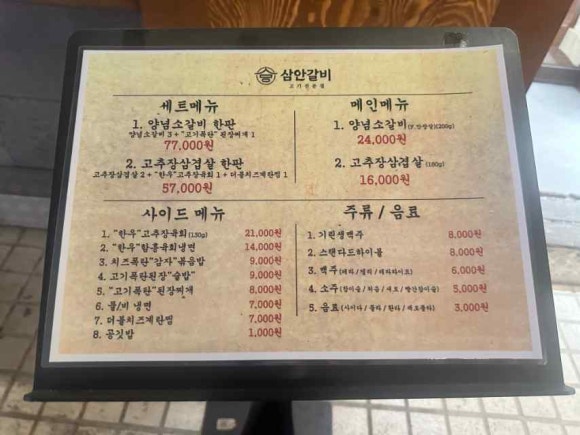 삼안갈비
고기전문점
세트메뉴
1. 양념소갈비 한판
양념소갈비 3 + "고기폭탄" 된장찌개 1
77,000원
2. 고추장삼겹살 한판
고추장삼겹살 2 + "한우"고추장육회 1 + 더블치즈계란찜 1
57,000원
메인메뉴
1. 양념소갈비 (200g)
24,000원
2. 고추장삼겹살 (180g)
16,000원
사이드 메뉴
1. "한우"고추장육회 (130g) 21,000원
2. "한우"함흥육회냉면 14,000원
3. 치즈폭탄"감자"볶음밥 9,000원
4. 고기폭탄된장"술밥" 9,000원
5. "고기폭탄"된장찌개 8,000원
6. 물/비 냉면 7,000원
7. 더블치즈계란찜 7,000원
8. 공깃밥 1,000원
주류 / 음료
1. 기린생맥주 8,000원
2. 스탠다드하이볼 8,000원
3. 맥주 (테라 / 켈리 / 테라라이트) 6,000원
4. 소주 (참이슬 / 처음 / 새로 / 빨간참이슬) 5,000원
5. 음료 (사이다 / 콜라 / 환타 / 제로콜라) 3,000원